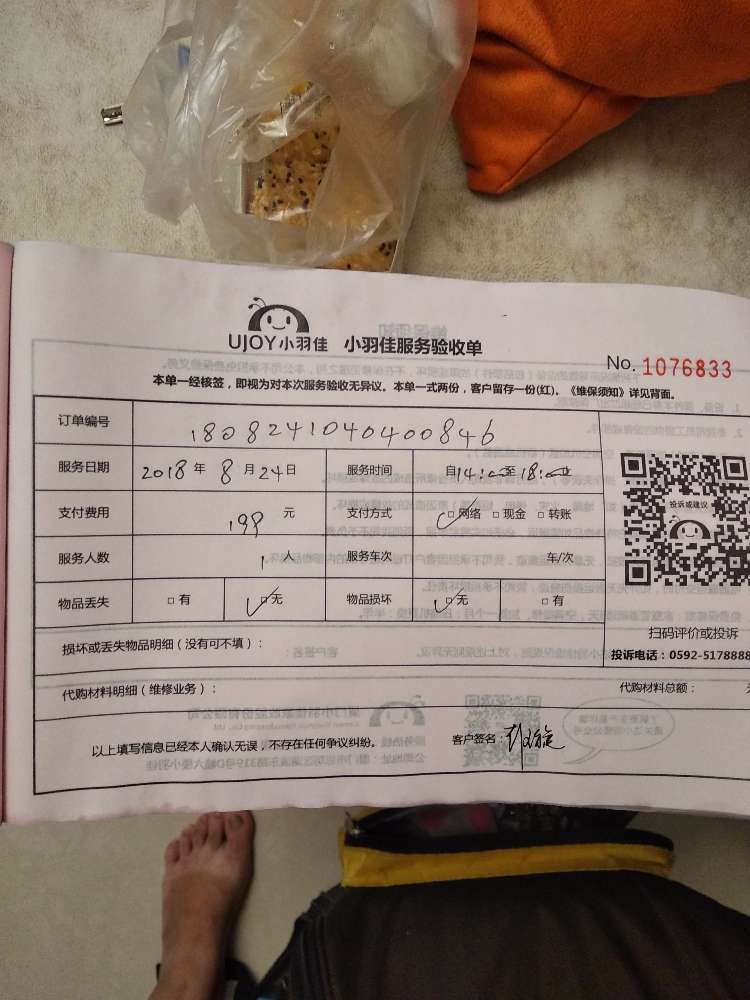 UJOY小羽佳 小羽佳服务验收单
No. 1076833
本单一经核签，即视为对本次服务验收无异议。本单一式两份，客户留存一份(红)。《维保须知》详见背面。
订单编号 180824104040400846
服务日期 2018 年 8 月 24 日 服务时间 自14:00至18:00止
支付费用 199 元 支付方式 □网络 □现金 □转账
投诉或建议
服务人数 1 人 服务车次 车/次
物品丢失 □有 □无 物品损坏 □无 □有
扫码评价或投诉
损坏或丢失物品明细（没有可不填）：
投诉电话：0592-5178888
代购材料明细（维修业务）： 代购材料总额：
以上填写信息已经本人确认无误，不存在任何争议纠纷。 客户签名：